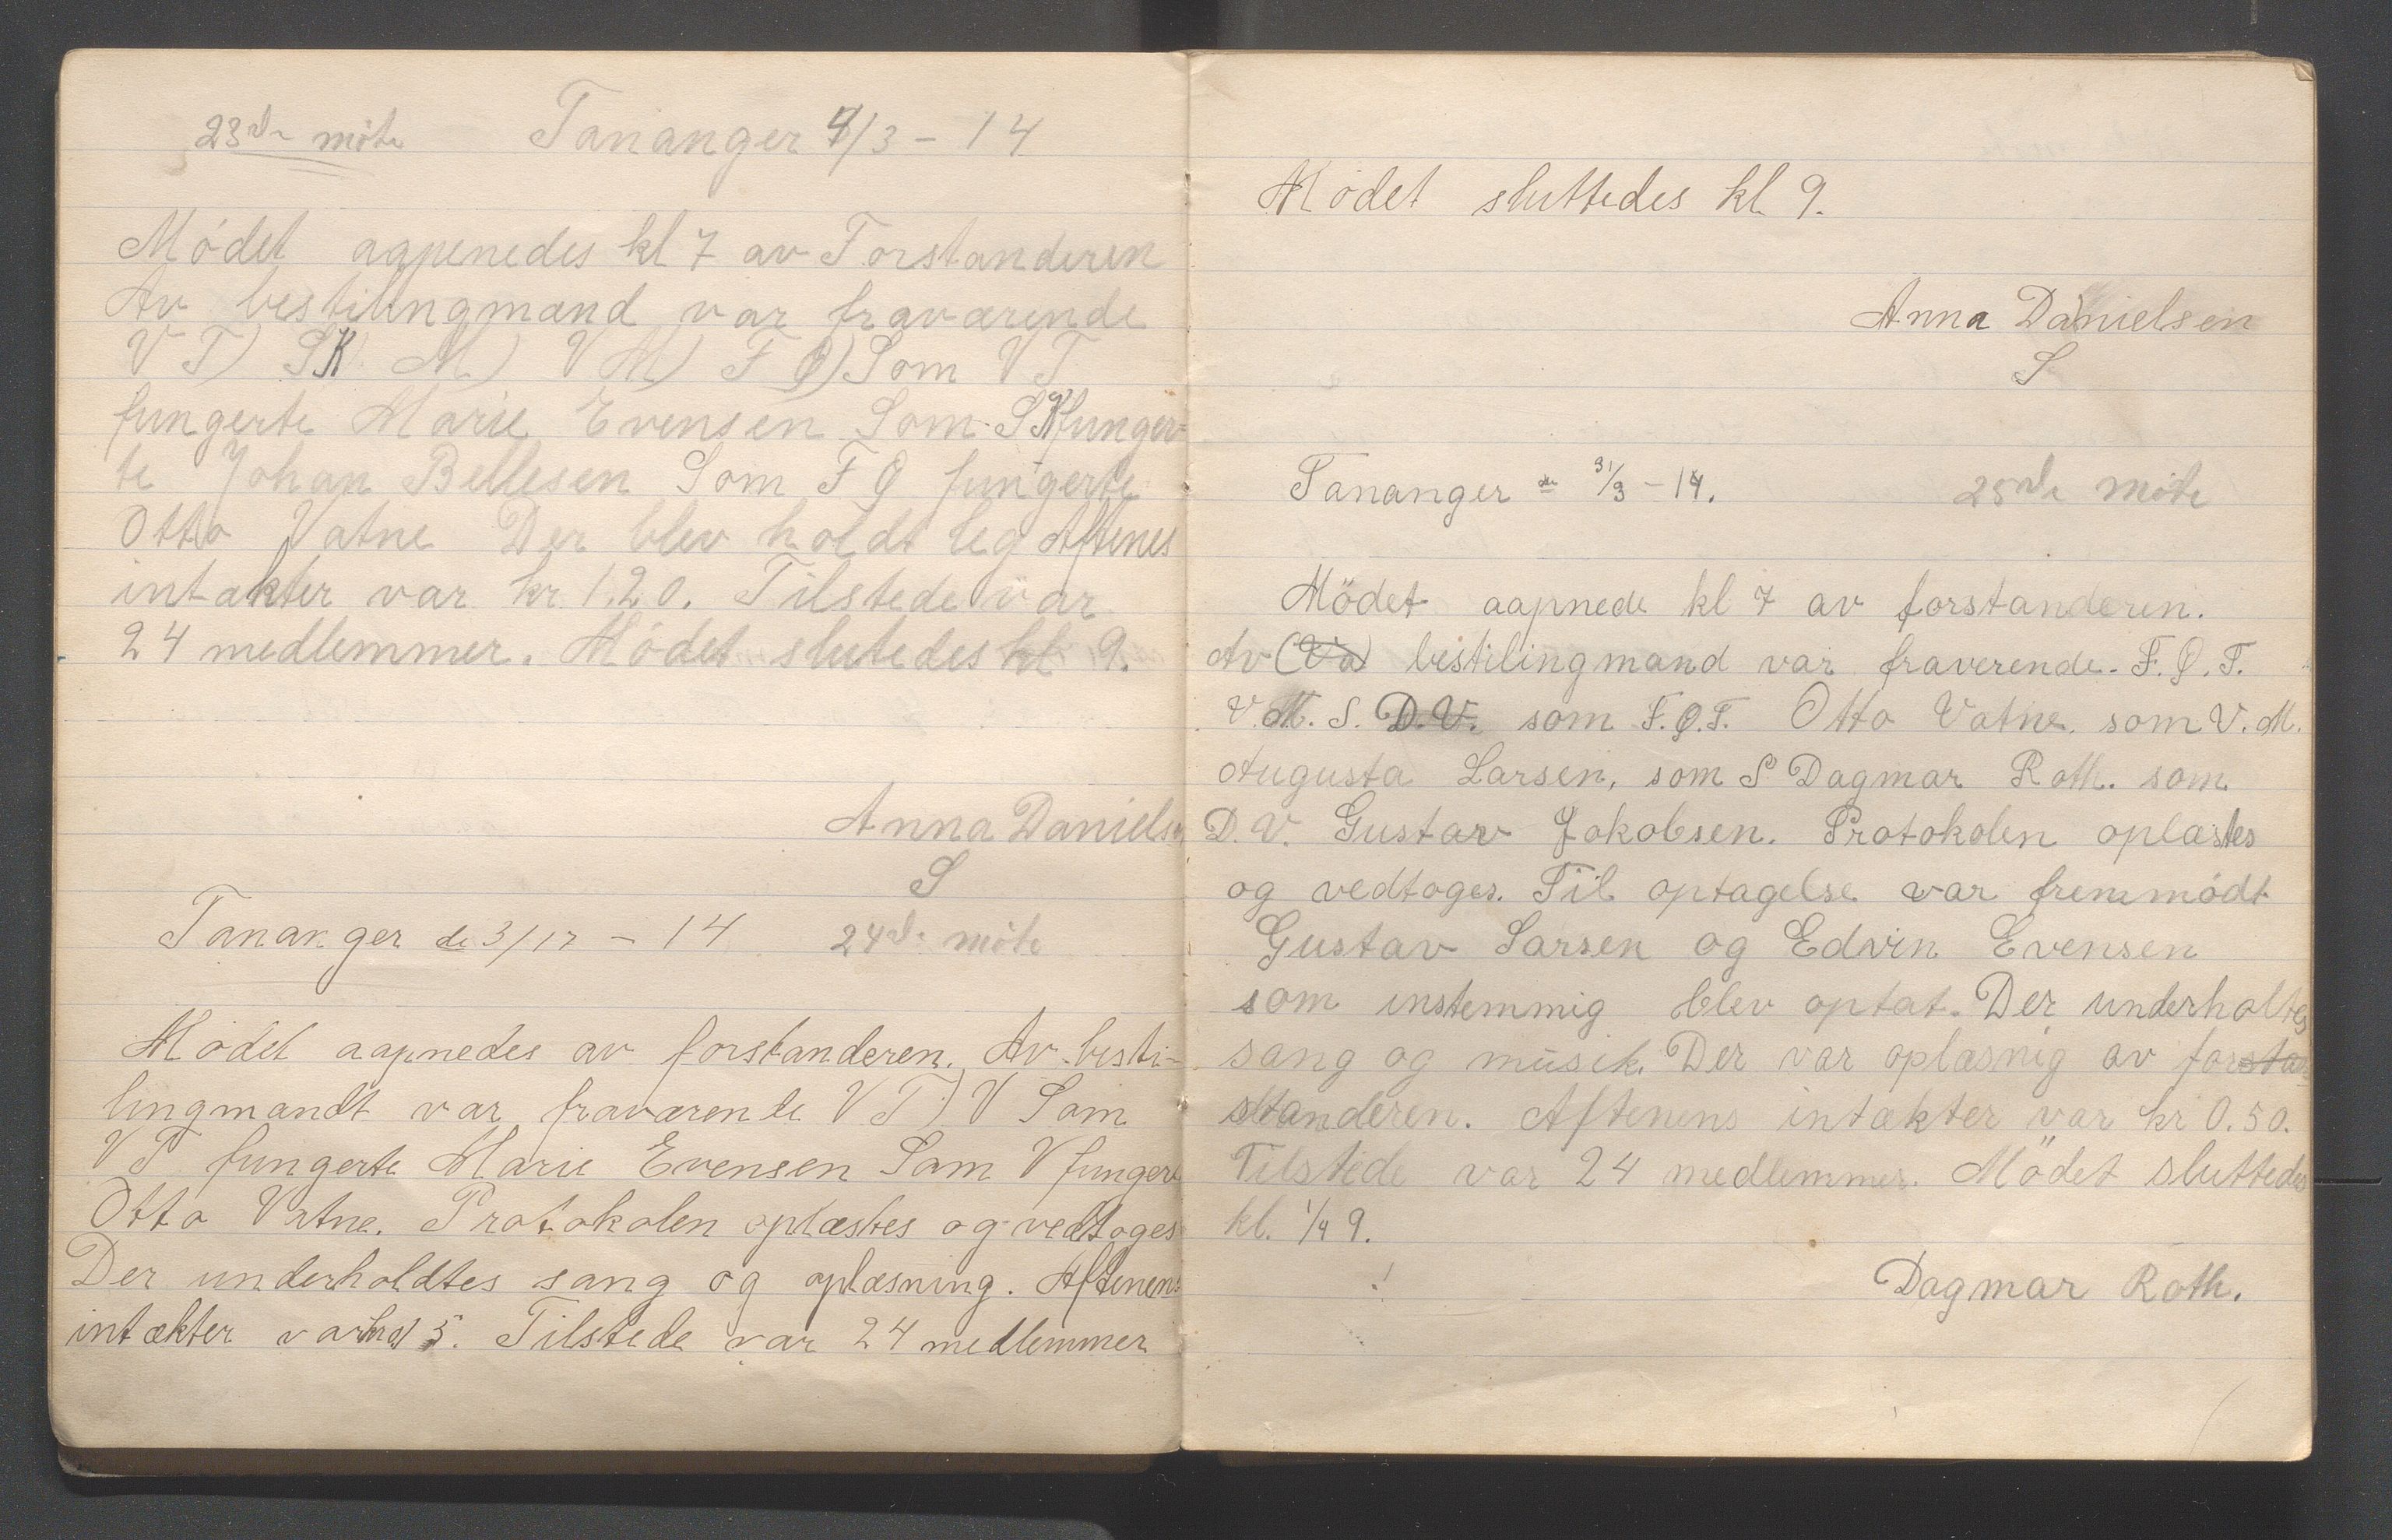 23de möte Tananger 4/3 - 14
Módet aapenedes kl 7 av Forstanderen
Av bestilingmand var fraværende
V T) SK M) V M) F Q) Som V T
fungerte Marie Evensen Som SK funger-
te Johan Bellesen Som F Q fungerte
Otto Vatne Der blev holdt leg Aftenes
intækter var kr 1.20. Tilstede var
24 medlemmer. Módet slutedes kl 9.
Anna Danielsen
S
Tananger de 3/17 - 14 24de möte
Mödet aapnedes av forstanderen. Av besti-
lingmandt var fraværende V T) V Som
V T fungerte Marie Evensen Som V fungerte
Otto Vatne. Protokolen oplæstes og vedtoges
Der underholdtes sang og oplæsning. Aftenens
intækter var 5. Tilstede var 24 medlemmer
Módet sluttedes kl 9.
Anna Danielsen
S
Tananger de 31/3 - 14. 25de möte
Mödet aapnede kl 7 av forstanderen.
Av (Va) bestilingmand var fraverende. F.Q.T.
V.M. S. D.V. som F.Q.T. Otto Vatne. som V.M.
Augusta Larsen, som S Dagmar Roth. som
D.V. Gustav Jakobsen. Protokolen oplæstes
og vedtoges. Til optagelse var fremmödt
Gustav Larsen og Edvin Evensen
som enstemmig blev optat. Der underholtes
sang og musik. Der var oplæsnig av forstan
standeren. Aftenens intækter var kr 0.50.
Tilstede var 24 medlemmer. Mödet sluttedes
kl. 1/4 9.
Dagmar Roth.